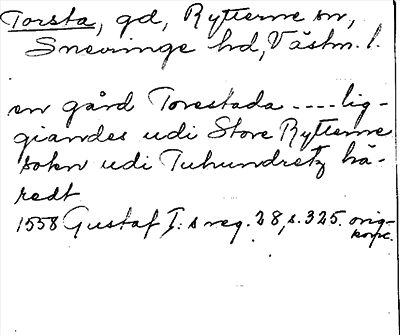 Torsta, gd, Rytterne sn,
Snevringe hd, Västm. l.
en gård Torestada .... lig-
giandes udi Store Rytterne
sokn udi Tuhundretz hä-
redt
1558 Gustaf I:s reg. 28, s. 325. orig-
konc.